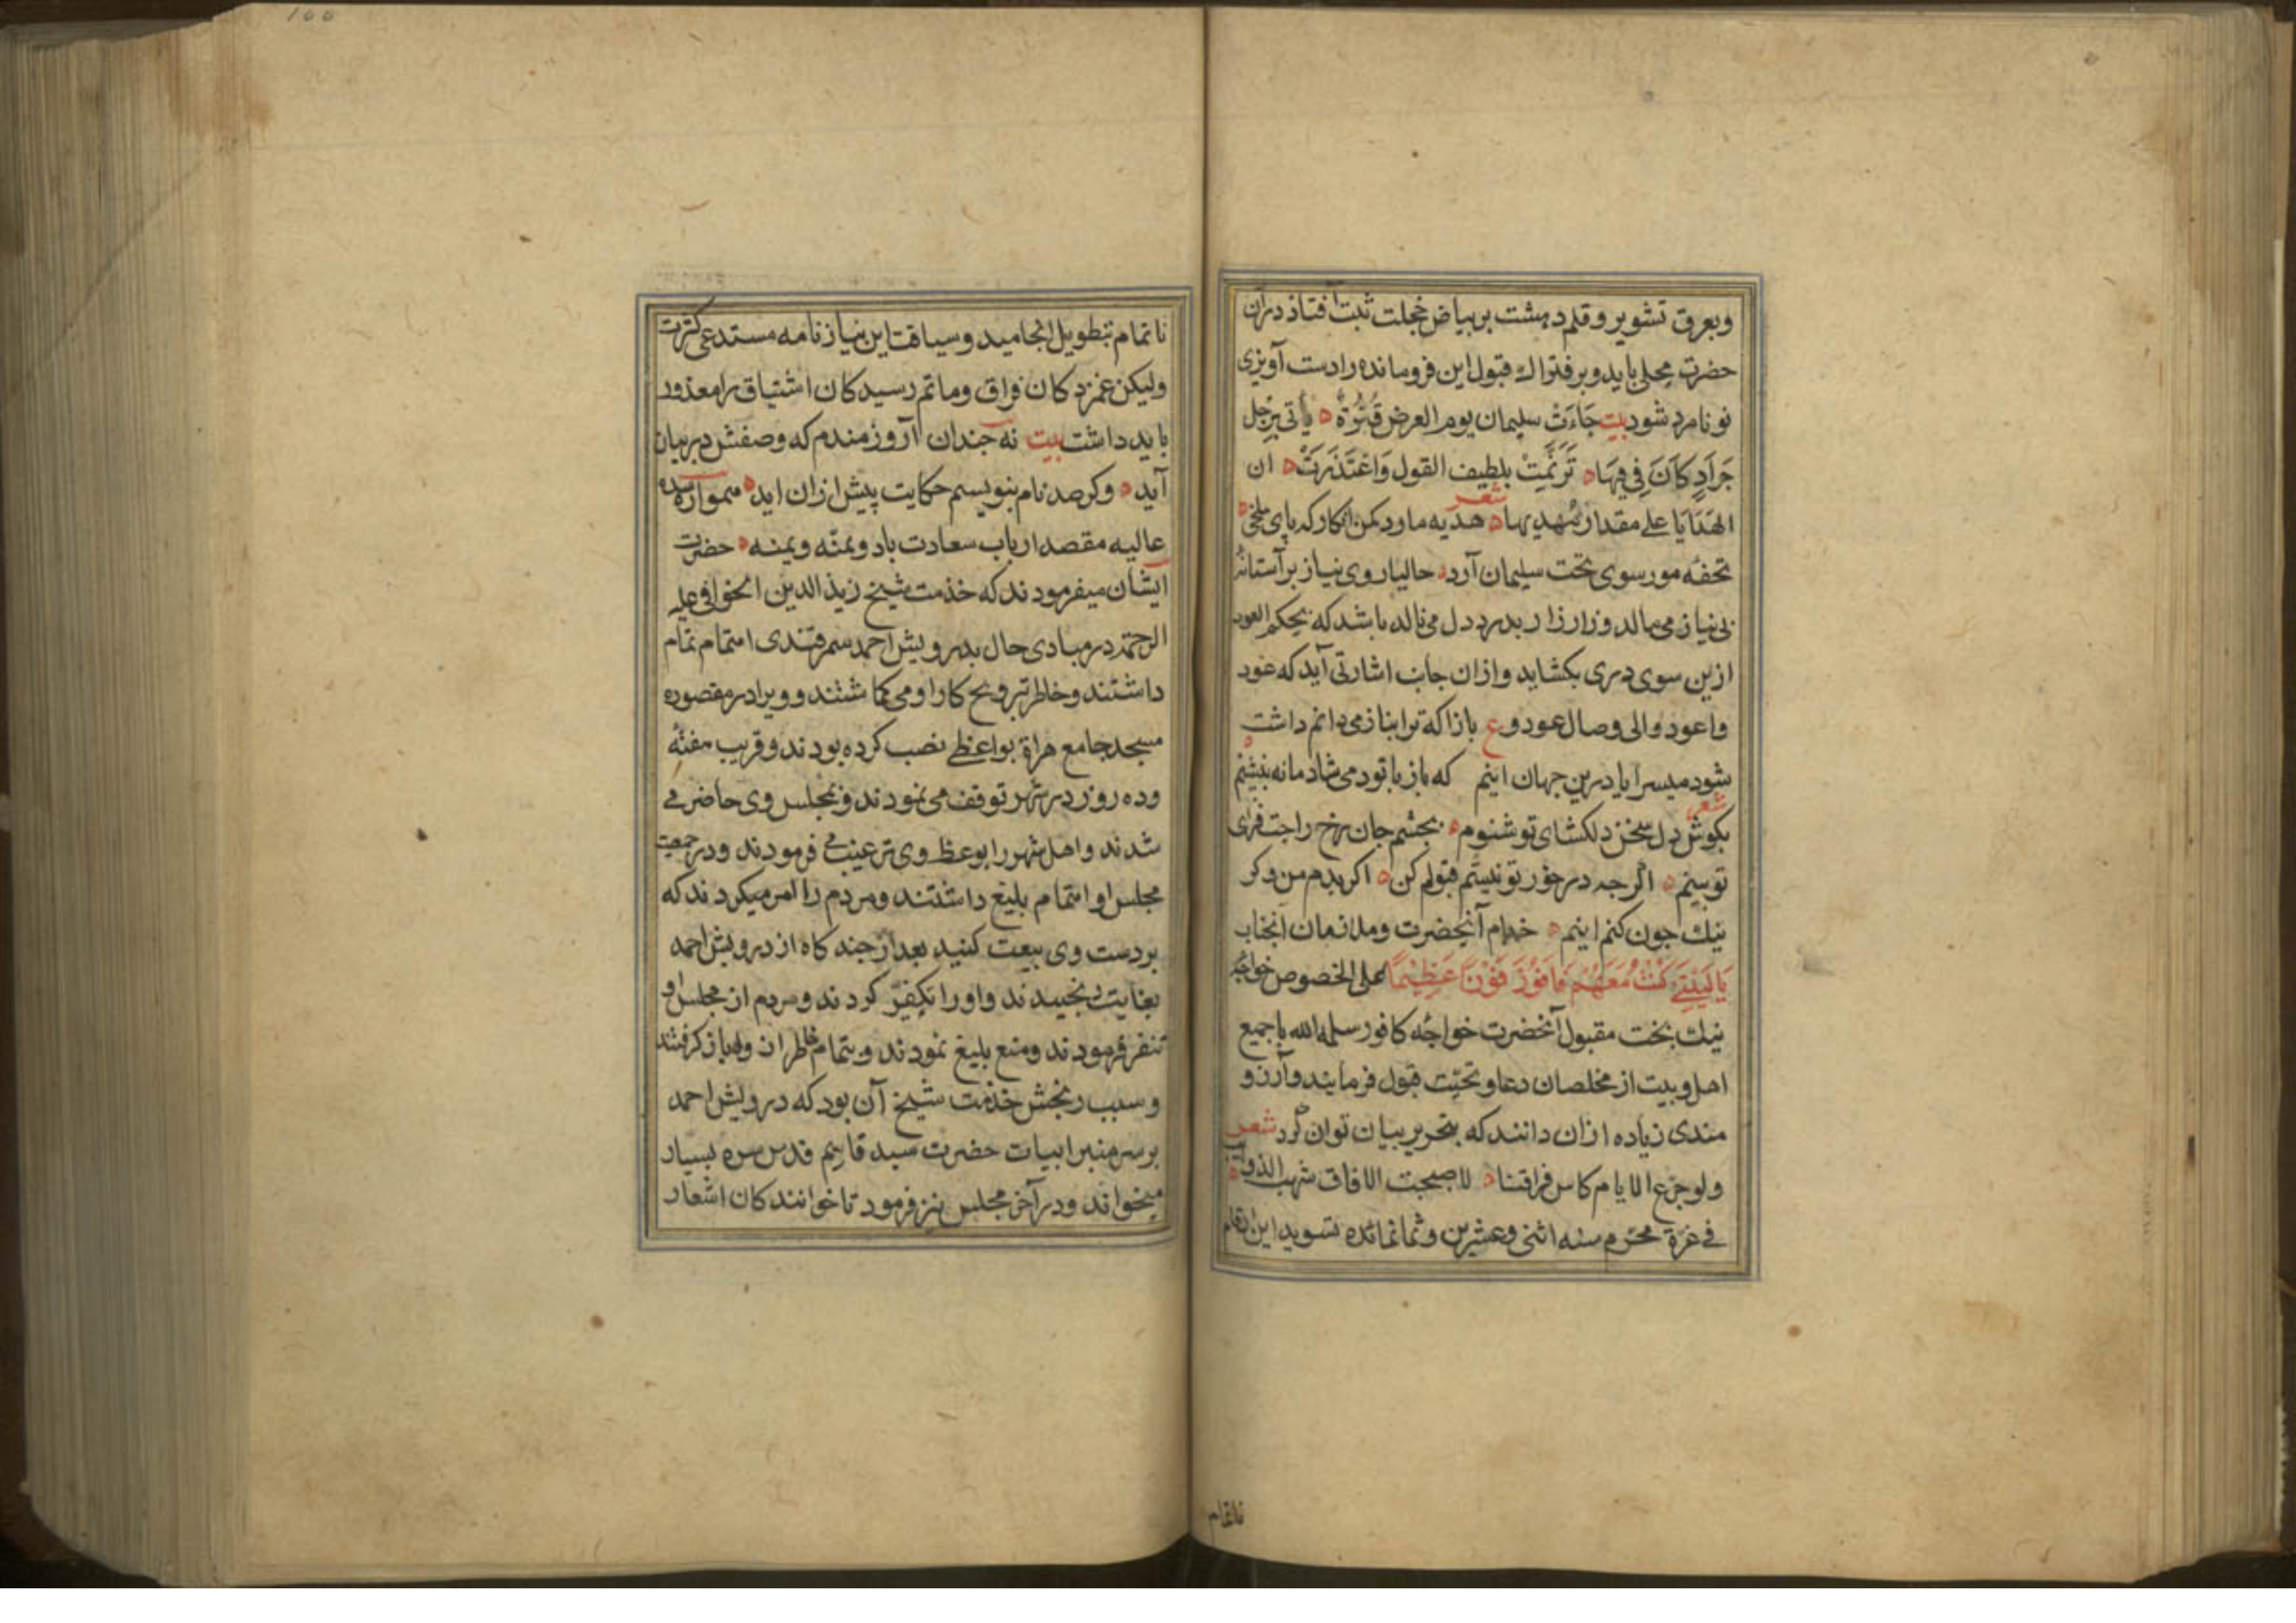 وبعرق تشویر و قلم دهشت بر بیاض خجلت ثبت افتاد در آن
حضرت محلی یابد و بر فتراك قبول این فرومانده را دست آویزی
نو نامرد شود بیت جَاءَتْ سلیمان یوم العرض قُبَّرَةٌ یأتی بِرِجل
جَرَادٍ کَانَ فِی فِیهَا تَرَنَّمَتْ بلطیف القول وَاعْتَذَرَتْ ان
الهَدَایَا علی مقدار مُهدیها شعر هدیه ماود مکن انکار که پای ملخی
تحفه مور سوی تخت سلیمان آرد حالیا روی نیاز بر آستانهٔ
بی نیاز می مالد و زار زار بدرد دل می نالد باشد که بحکم العود
ازین سوی دری بکشاید و ازان جانب اشارتی آید که عود
واعود والی وصال عود وع باز اکه ترا بناز می دانم داشت
شود میسر ایا درین جهان اینم که باز با تو دمی شادمانه بنشینم
شعر بکوش دل سخن دلکشای تو شنوم بچشم جان رخ راحت فزای
تو بینم اگرچه در خور تو نیستم قبولم کن اکر بدم من و کر
نیك جون کنم اینم خدام آنحضرت و ملازمان آنجناب
یَا لَیْتَنِی کُنْتُ مَعَهُمْ فَافُوْزَ فَوْزًا عَظِیْمًا علی الخصوص خواجه
نیك بخت مقبول آنحضرت خواجه کافور سلمه الله با جمیع
اهل و بیت از مخلصان دعا و تحیّت قبول فرمایند و آرزو
مندی زیاده ازان دانند که بتحریر بیان توان کرد شعر
ولو جرع الایام کاس فراقنا لاصبحت الافاق شهب الذوایب
فی غرة محرّم سنه اثنی وعشرین وثمانمائه تسوید این ارقام
ناتمام
ناتمام بتطویل انجامید و سیاقت این نیاز نامه مستدعی کثرت
ولیکن غمزدکان فراق و ماتم رسیدکان اشتیاق را معذور
باید داشت بیت نه جندان آروزمندم که وصفش در بیان
آید وکر صد نام بنویسم حکایت پیش ازان اید همواره سده
عالیه مقصد ارباب سعادت باد وبمنّه ویمنه حضرت
ایشان میفرمودند که خذمت شیخ زین الدین الخوافی علیه
الرحمة در مبادی حال بدرویش احمد سمرقندی اهتمام تمام
داشتند و خاطر بترویج کار او می کماشتند و ویرا در مقصوره
مسجد جامع هراة بواعظی نصب کرده بودند و قریب هفتهٔ
وده روز در شهر توقف می نمودند و بمجلس وی حاضر می
شدند و اهل شهر را بوعظ وی ترغیب می فرمودند و در جمعیت
مجلس او اهتمام بلیغ داشتند و مردم را امر میکردند که
بر دست وی بیعت کنید بعد از جند کاه از درویش احمد
بغایت رنجیدند و اورا تکفیر کردند و مردم از مجلس او
تنفر فرمودند و منع بلیغ نمودند و بتمام خاطر از وی باز کرفتند
و سبب رنجش خذمت شیخ آن بود که درویش احمد
بر سر منبر ابیات حضرت سید قاسم قدس سره بسیار
میخواند و در آخر مجلس نیز فرمود تا خوانندکان اشعار